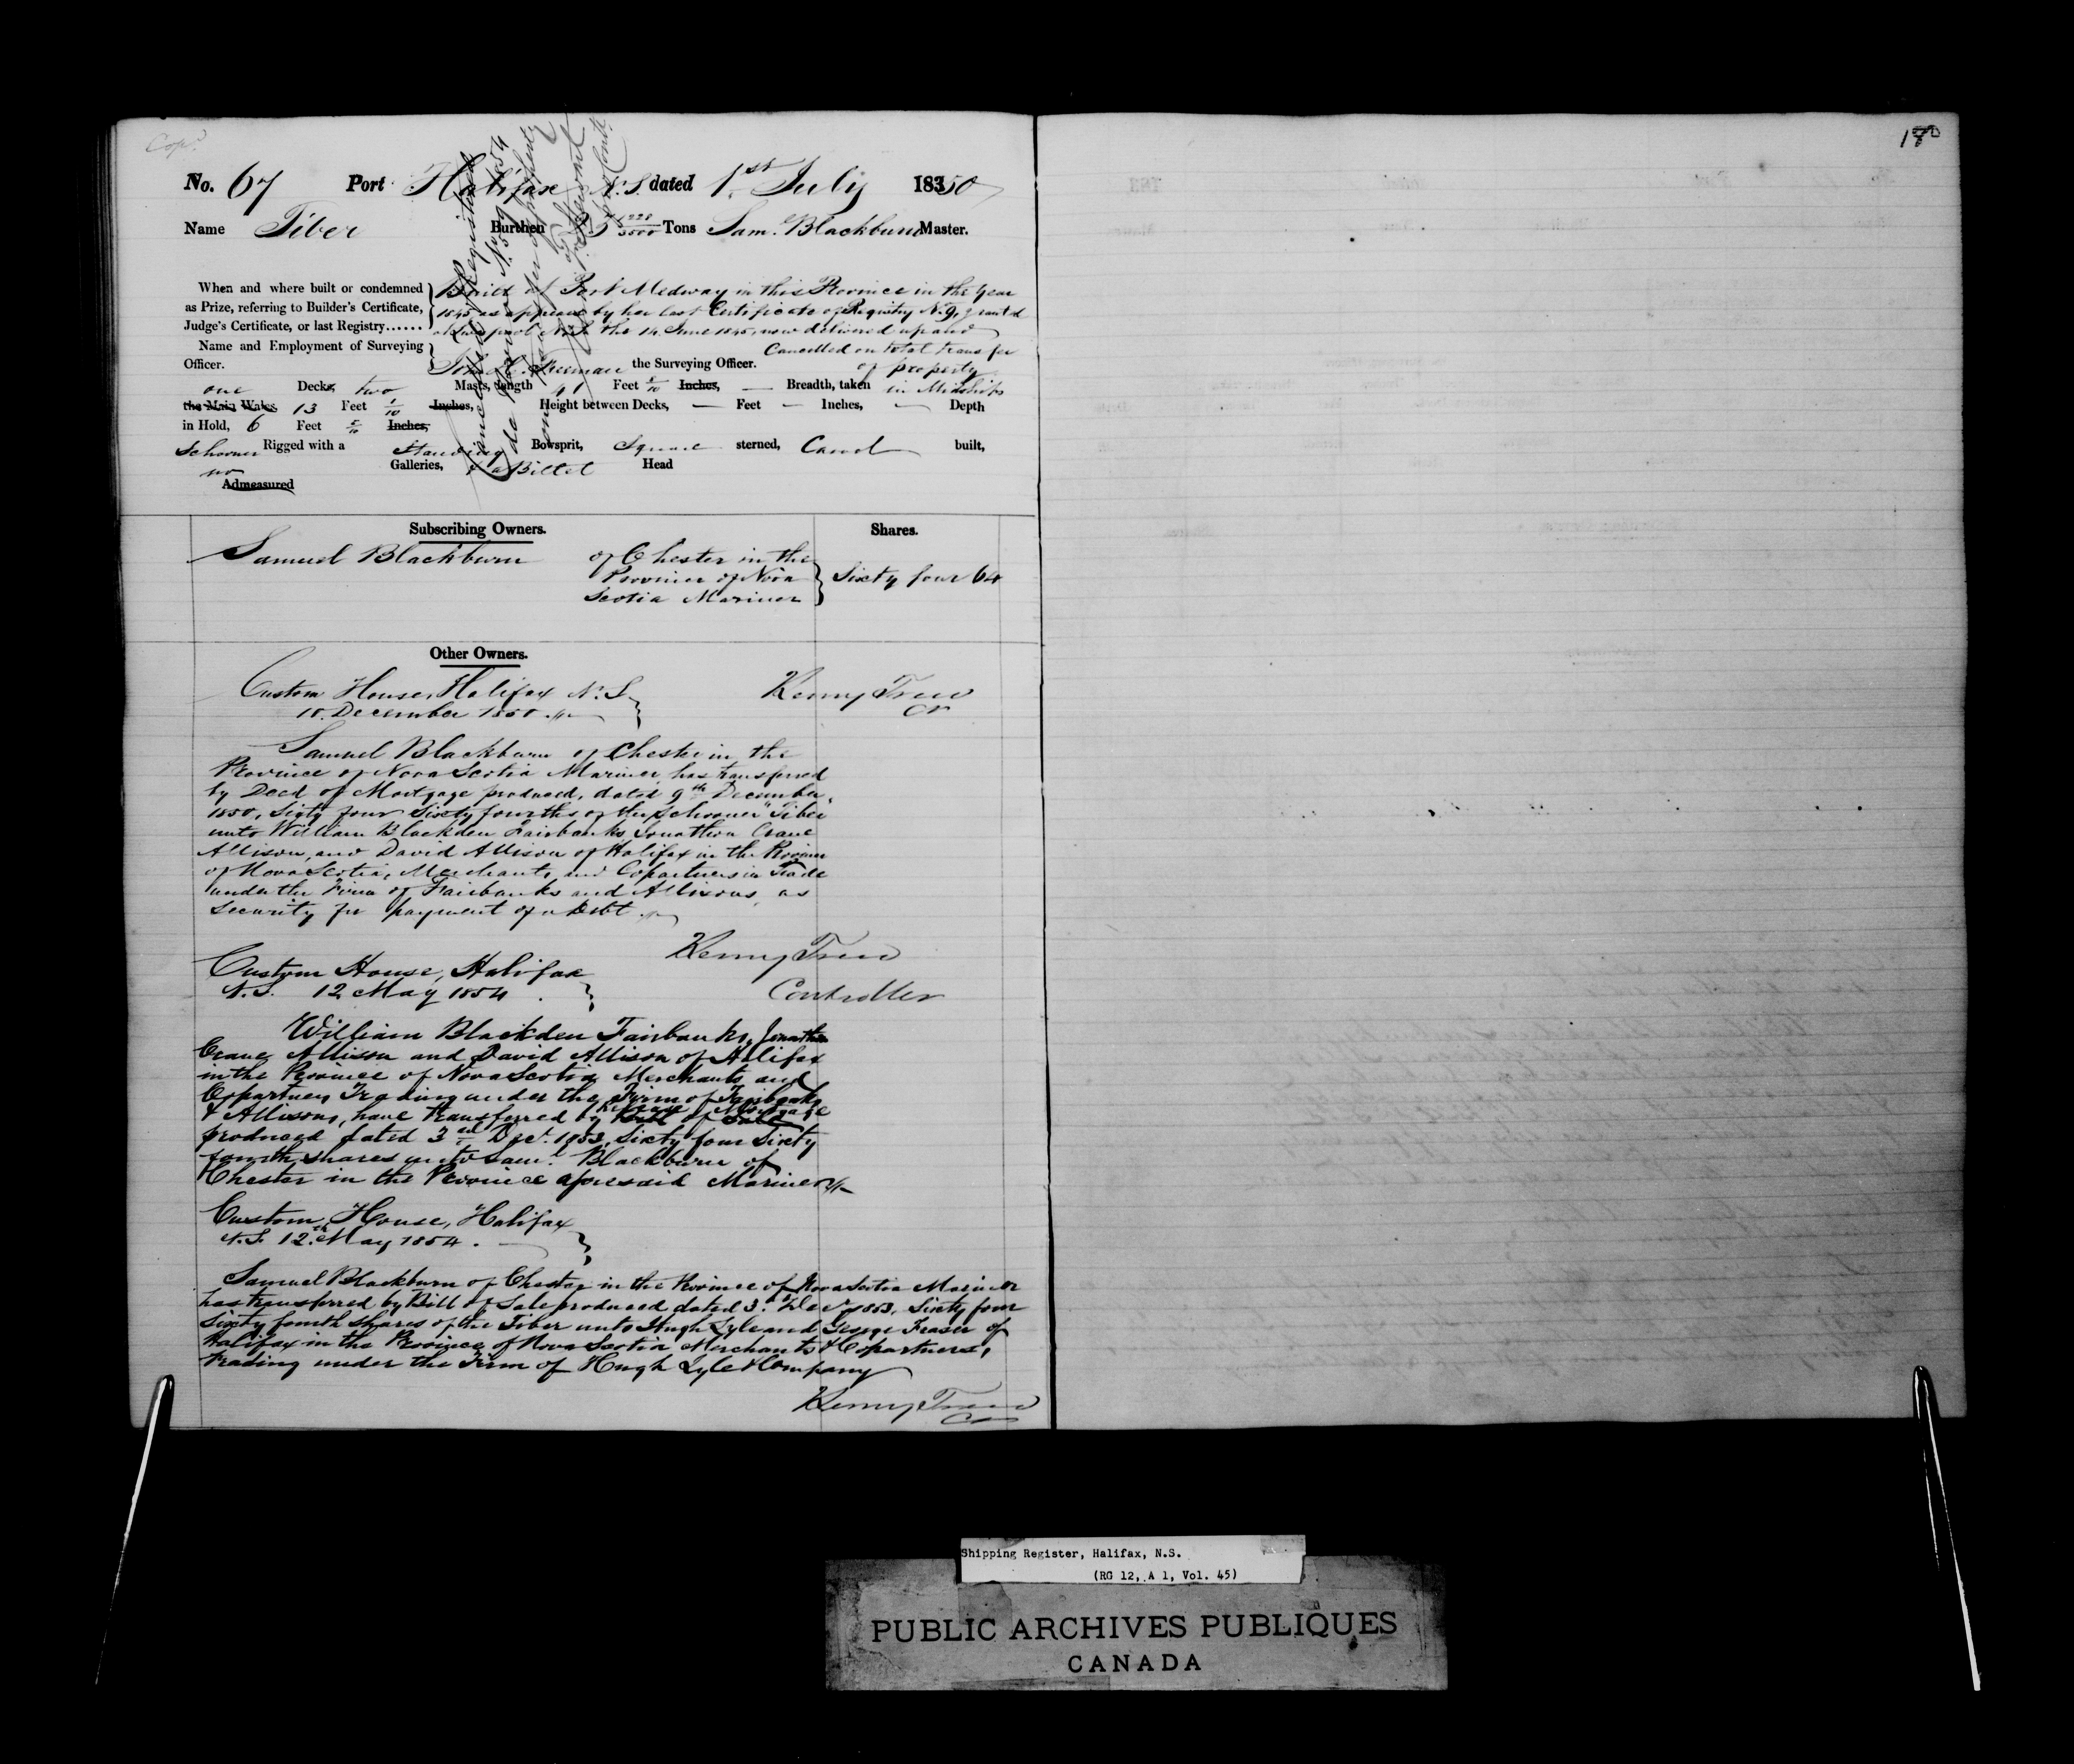 Cop.d
180
No. 67 Port Halifax N.S. dated 1.st July 18350
Name Tiber Burthen 25 1228/3500 Tons Sam.l Blackburn Master.
When and where built or condemned as Prize, referring to Builder's Certificate, Judge's Certificate, or last Registry......
Built at Port Medway in this Province in the Year
1845 as appears by her last Certificate of Registry No. 9, granted
at Liverpool N.S. the 14 June 1845, now delivered up and
Cancelled on total transfer
of property
Name and Employment of Surveying Officer.
Freeman the Surveying Officer.
one Decks, two Masts, length 41 Feet 5/10 Inches, — Breadth, taken in Midships
the Main Wales 13 Feet 1/10 Inches, Height between Decks, — Feet — Inches, — Depth
in Hold, 6 Feet 5/10 Inches,
Schooner Rigged with a Standing Bowsprit, Square sterned, Carvel built,
no Galleries, & a Billet Head
Admeasured
Cancelled & Registered
de Novo No. 59 1854
Subscribing Owners. Shares.
Samuel Blackburn of Chester in the
Province of Nova
Scotia Mariner
Sixty four 64
Other Owners.
Custom House, Halifax N.S.
10. December 1850
Kenny Trew
Cr
Samuel Blackburn of Chester in the
Province of Nova Scotia Mariner has transferred
by Deed of Mortgage produced, dated 9th December
1850, Sixty four Sixty fourths of the Schooner "Tiber"
unto William Blackden Fairbanks, Jonathan Crane
Allison, and David Allison of Halifax in the Province
of Nova Scotia, Merchants and Copartners in Trade
under the Firm of Fairbanks and Allisons, as
Security for payment of a Debt
Kenny Trew
Controller
Custom House, Halifax
N.S. 12 May 1854
William Blackden Fairbanks, Jonathan
Crane Allison and David Allison of Halifax
in the Province of Nova Scotia Merchants and
Copartners Trading under the Firm of Fairbanks
& Allisons, have transferred by Bill of Sale release of Mortgage
produced dated 3rd Decr. 1853, Sixty four Sixty
fourth shares unto Saml. Blackburn of
Chester in the Province aforesaid Mariner
Custom House, Halifax
N.S. 12th May 1854.
Samuel Blackburn of Chester in the Province of Nova Scotia Mariner
has transferred by Bill of Sale produced dated 3.d Decr 1853, Sixty four
Sixty fourth shares of the Tiber unto Hugh Lyle and George Fraser of
Halifax in the Province of Nova Scotia Merchants & Copartners,
trading under the Firm of Hugh Lyle & Company
Kenny Trew
Shipping Register, Halifax, N.S.
(RG 12, A 1, Vol. 45)
PUBLIC ARCHIVES PUBLIQUES
CANADA